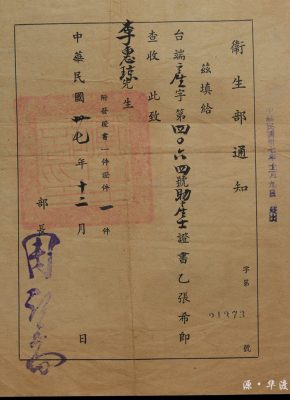 衛生部通知
字第01373號
茲填給
台端產字第四〇六四號助產士證書乙張希即
查收此致
李惠琼先生
附發證書一件證件一件
中華民國卅七年十二月 日
部長
源·华渡